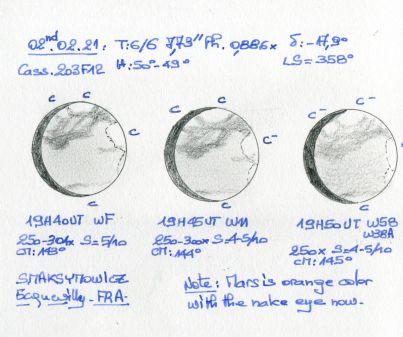 02nd.02.21: T:6/6 7,79" Ph. 0,886x δ:-17,9°
Cass. 203F12 H:50°-49° LS=358°
C C C C- C- C-
C C C
19H40UT WF 19H45UT W11 19H50UT W58
W38A
250-304x S=5/10 250-300x S=4-5/10 250x S=4-5/10
CM:143° CM:144° CM:145°
SMAKSYMOWICZ Note: Mars is orange color
Ecquevilly-FRA- with the nake eye now.